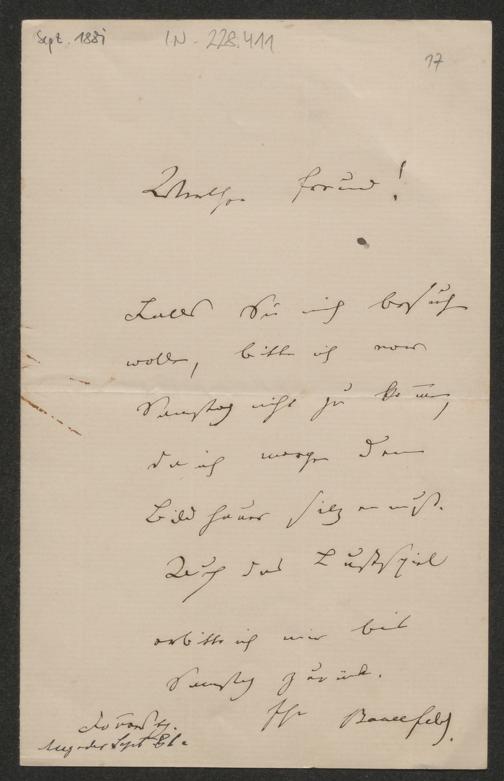 Sept. 1881
IN - 228.411
17
Werther Freund!
Falls Sie mich besuchen
wollen, bitte ich vor
Samstag nicht zu kommen,
da ich morgen dem
Bildhauer sitzen muß.
Auch das Lustspiel
erbitte ich mir bis
Samstag zurück.
Ihr Bauernfeld.
Donnerstg.
Sept